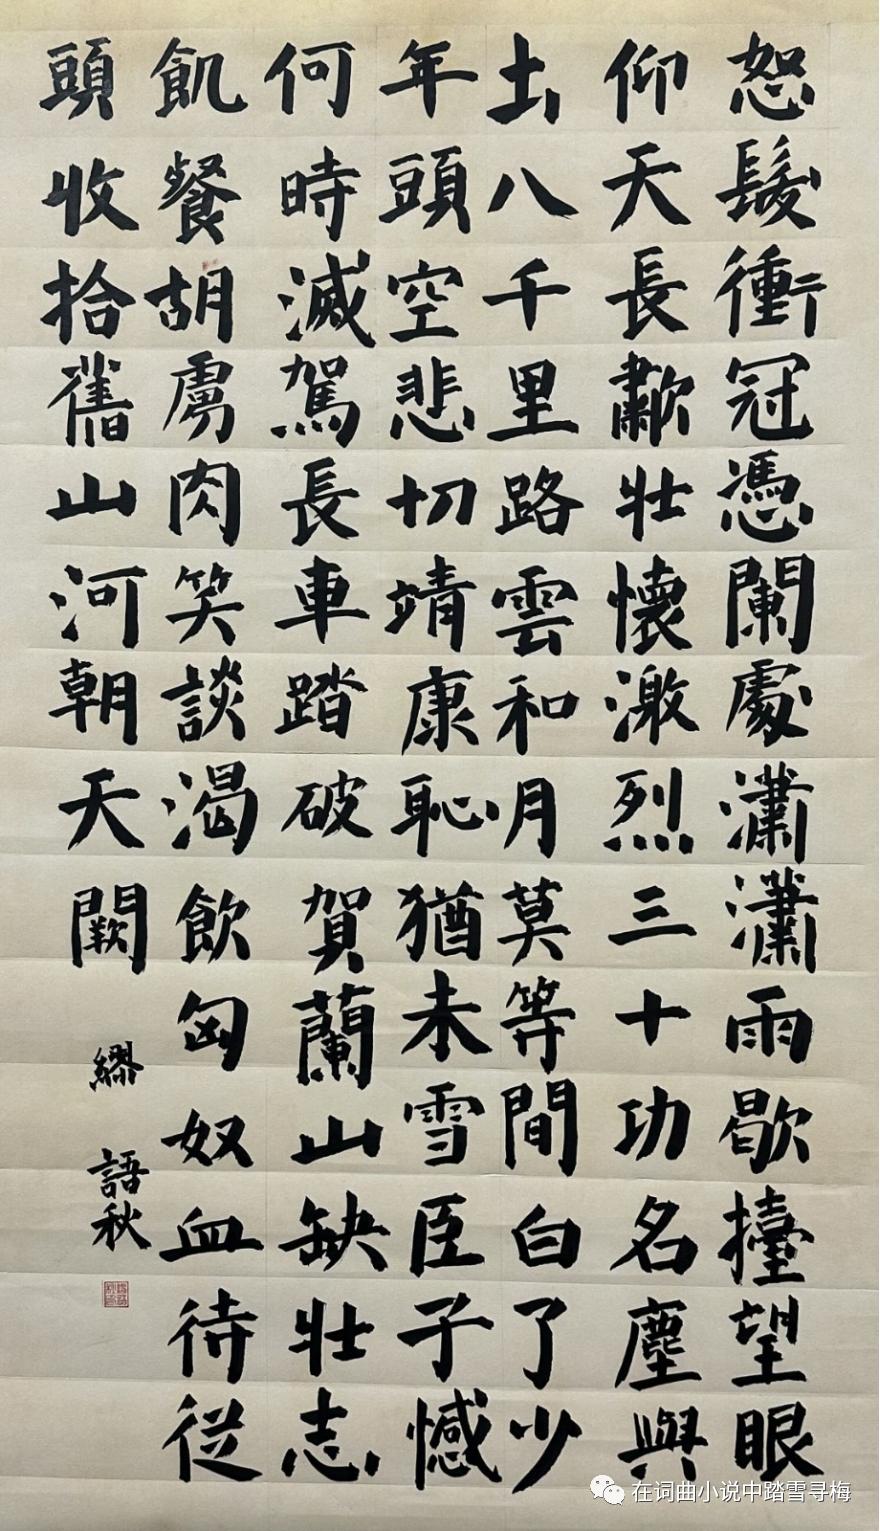 怒髮衝冠憑闌處瀟瀟雨歇擡望眼
仰天長歗壯懷激烈三十功名塵與
土八千里路雲和月莫等間白了少
年頭空悲切靖康恥猶未雪臣子憾
何時滅駕長車踏破賀蘭山缺壯志
飢餐胡虜肉笑談渴飲匈奴血待從
頭收拾舊山河朝天闕
繆語秋
在词曲小说中踏雪寻梅